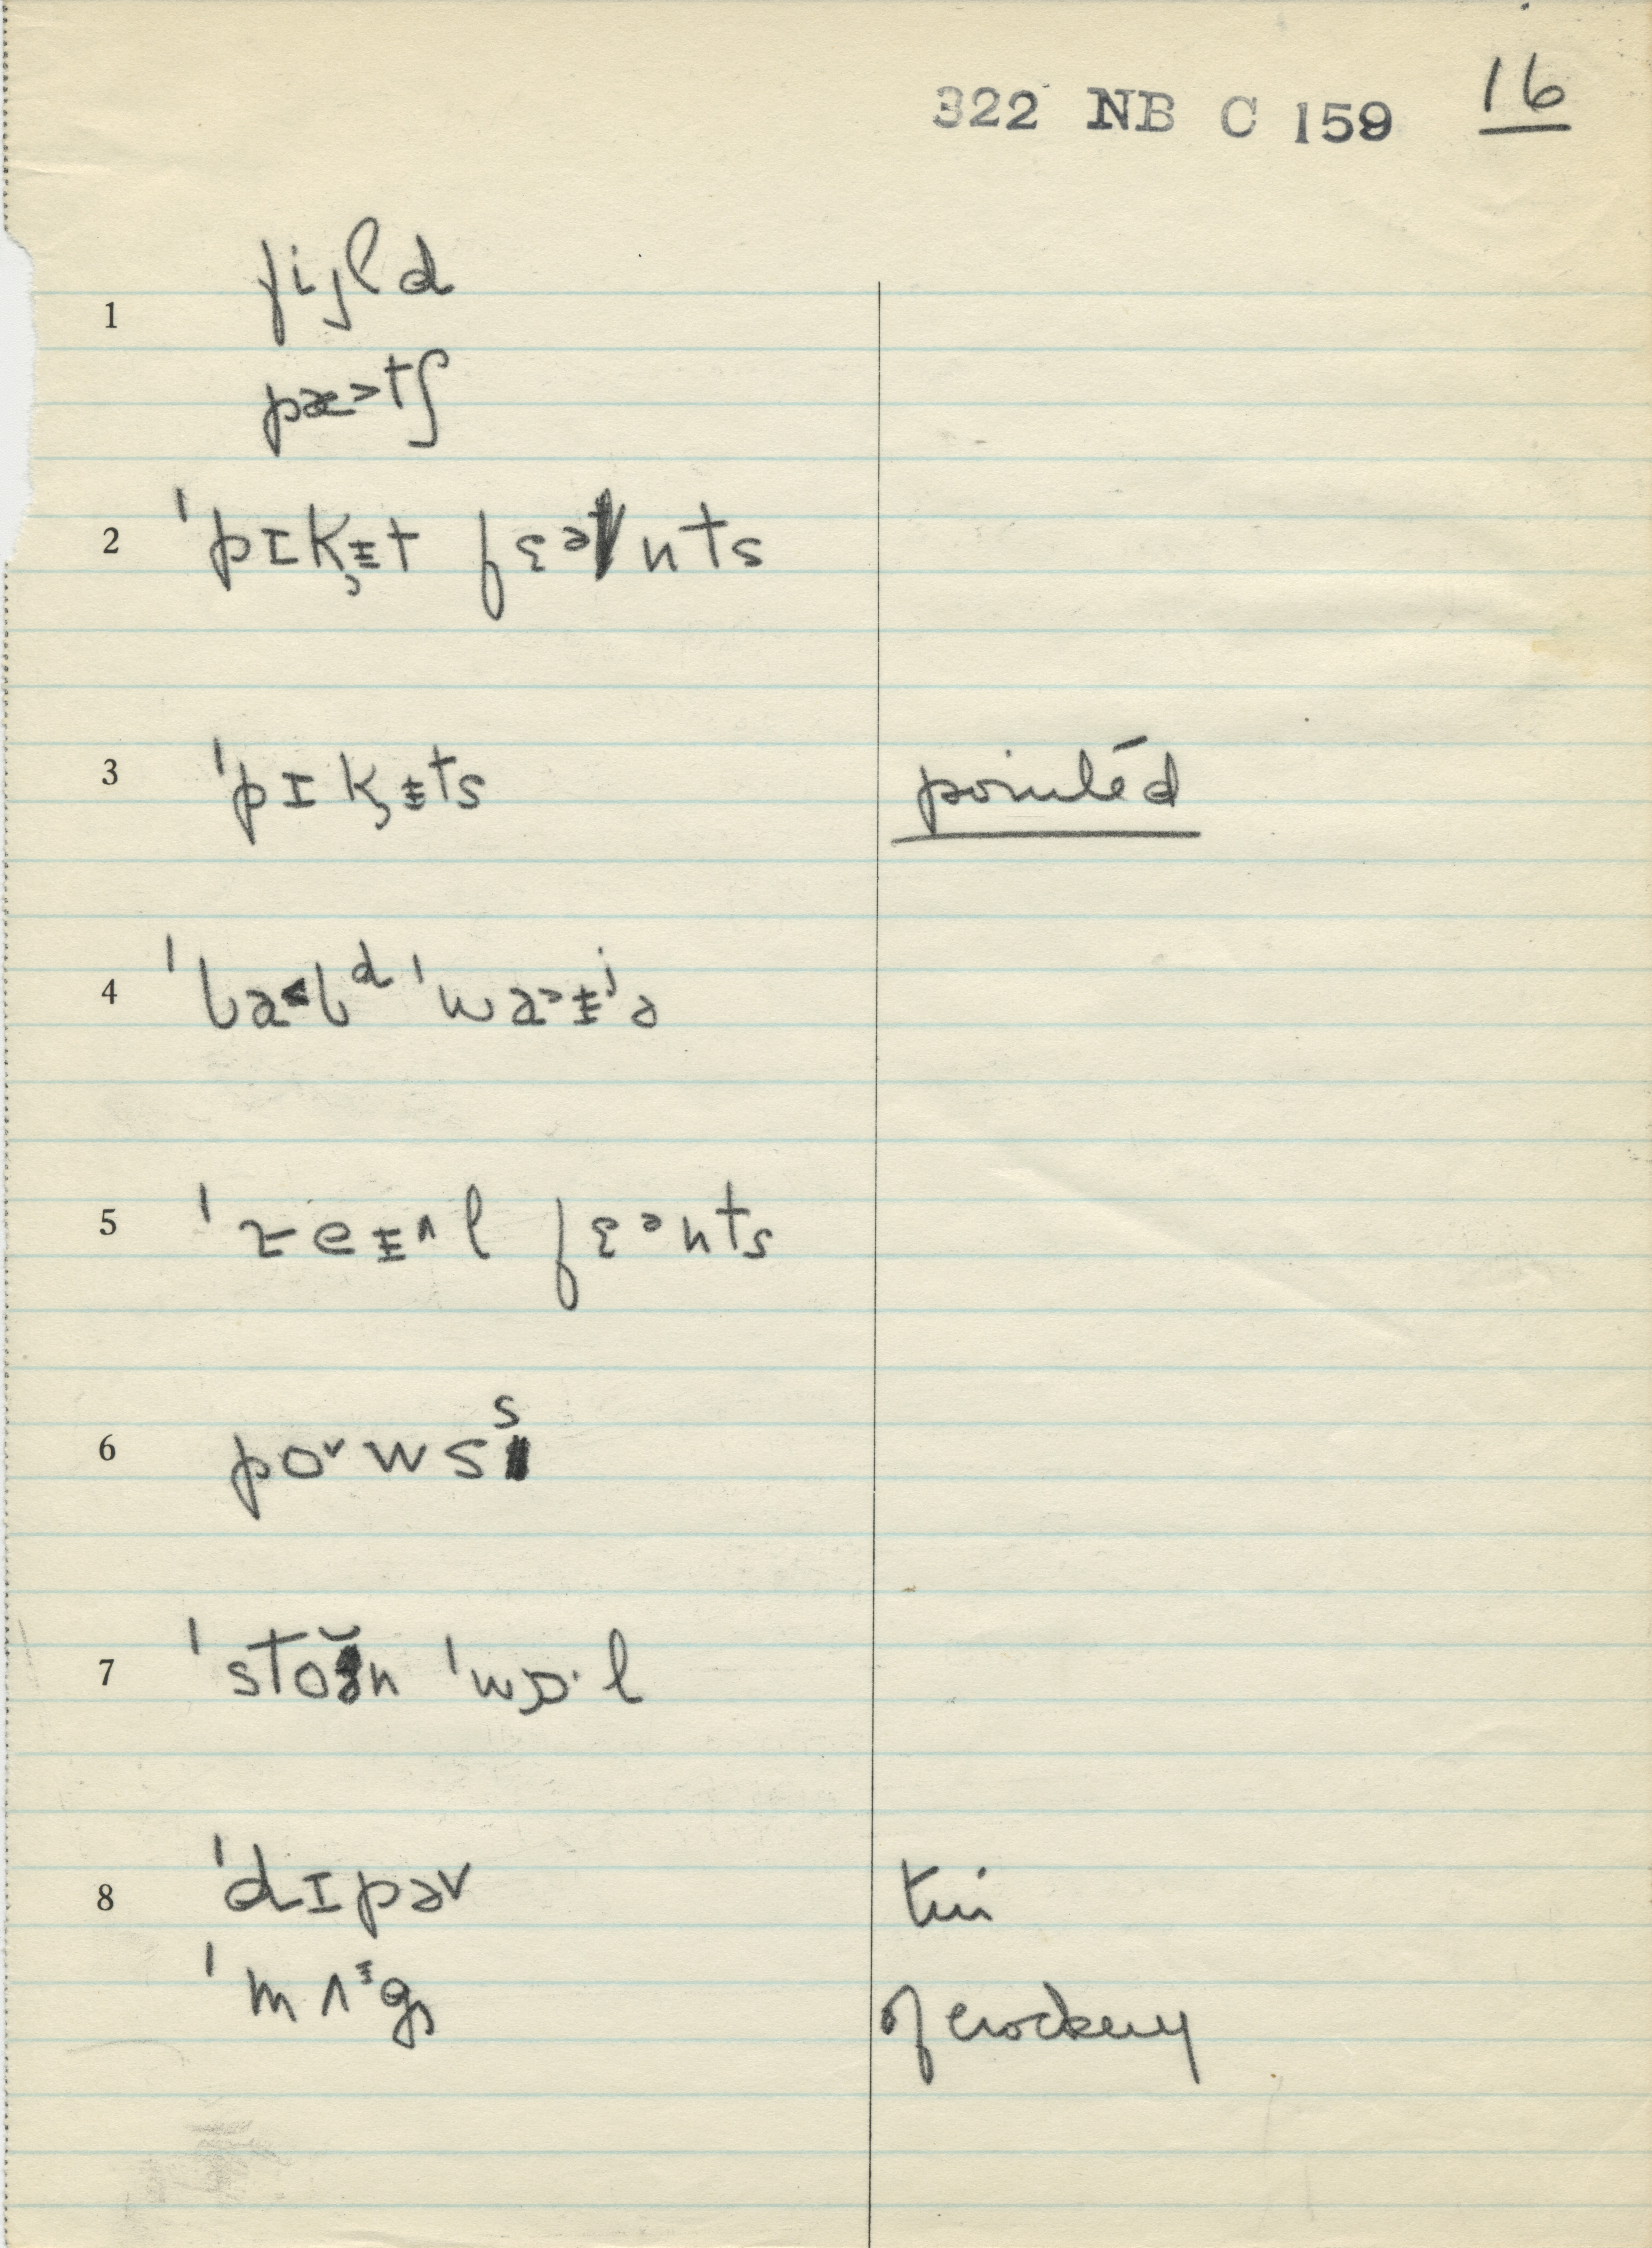 322 NB C 159 16
1 fijld
pæ˃tʃ
2 ˈpɪk̡ɨt fɛᵊnts
3 ˈpɪk̡ɨts pointed
4 ˈbɑ˂bᵈ ˈwa˃ɨʲə
5 ˈreɨ^l fɛᵊnts
6 po˅wsˢ
7 ˈstoʊ̆n ˈwɒ·l
8 ˈdɪpə˅ tin
ˈmʌᶤg̡ of crockery